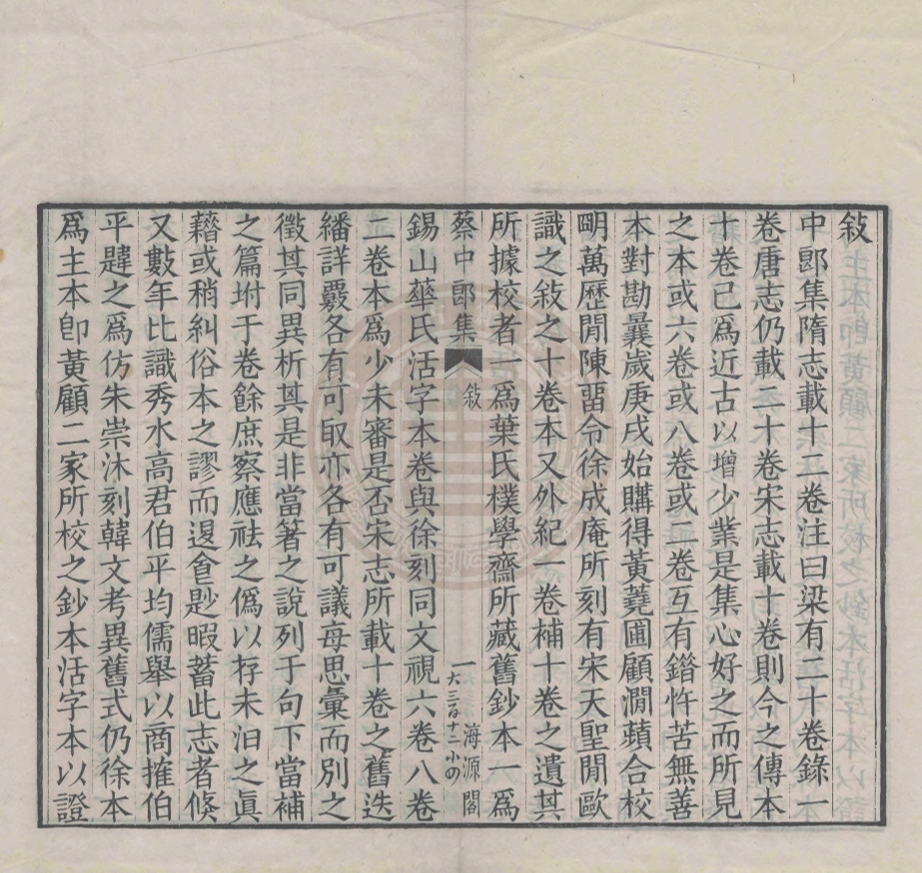 敍
中郎集隋志載十二卷注曰梁有二十卷錄一
卷唐志仍載二十卷宋志載十卷則今之傳本
十卷已爲近古以增少業是集心好之而所見
之本或六卷或八卷或二卷互有錯忤苦無善
本對勘曩歲庚戌始購得黃蕘圃顧澗薲合校
明萬歷閒陳留令徐成庵所刻有宋天聖閒歐
識之敍之十卷本又外紀一卷補十卷之遺其
所據校者一爲葉氏樸學齋所藏舊鈔本一爲
蔡中郎集 敍 一 大三百十二小四 海源閣
錫山華氏活字本卷與徐刻同文視六卷八卷
二卷本爲少未審是否宋志所載十卷之舊迭
繙詳覈各有可取亦各有可議每思彙而別之
徵其同異析其是非當箸之說列于句下當補
之篇坿于卷餘庶察應祛之僞以存未汩之眞
藉或稍糾俗本之謬而退食尟暇蓄此志者倏
又數年比識秀水高君伯平均儒舉以商搉伯
平韙之爲仿朱崇沐刻韓文考異舊式仍徐本
爲主本卽黃顧二家所校之鈔本活字本以證